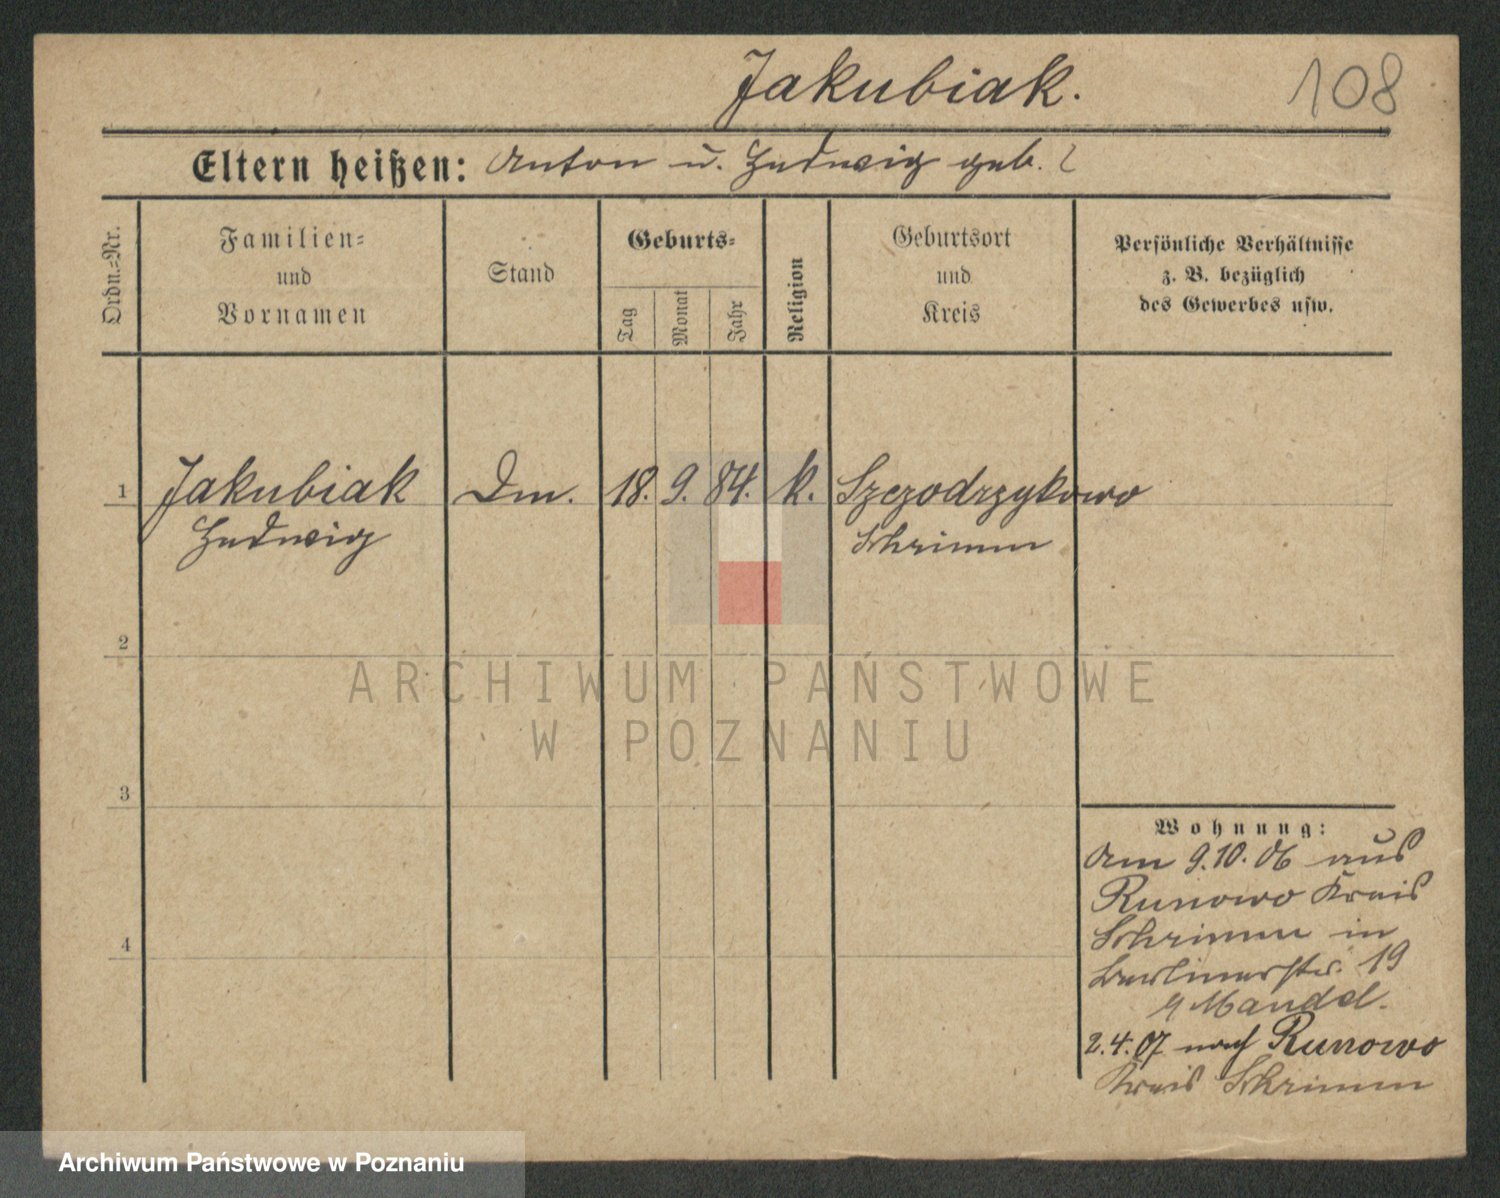 Jakubiak.
108
Eltern heißen: Anton u. Hedwig geb. ?
Ordn.-Nr.
Familien-
und
Vornamen
Stand
Geburts-
Tag
Monat
Jahr
Religion
Geburtsort
und
Kreis
Persönliche Verhältnisse
z. B. bezüglich
des Gewerbes usw.
1 Jakubiak Dm. 18. 9. 84. k. Szczodrzykowo
Hedwig Schrimm
2
ARCHIWUM PAŃSTWOWE
W POZNANIU
3
Wohnung:
Am 9.10.06 aus
Runowo Kreis
4 Schrimm in
Berlinerstr. 19
Mandel.
2.4.07 nach Runowo
Kreis Schrimm
Archiwum Państwowe w Poznaniu